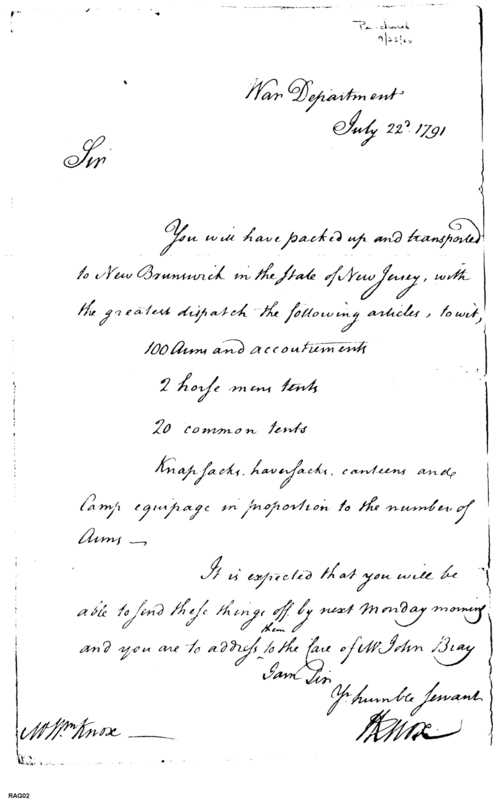 Purchased
9/23/60
War Department
July 22d. 1791
Sir
You will have packed up and transported
to New Brunswick in the State of New Jersey, with
the greatest dispatch the following articles, to wit,
100 Arms and accoutrements
2 horse mens tents
20 common tents
Knapsacks, haversacks, canteens and
Camp equipage in proportion to the number of
Arms —
It is expected that you will be
able to send these things off by next Monday morning
them
and you are to address ^ to the Care of Mr John Bray
I am Sir
Yr. humble Servant
HKnox
Mr Wm Knox —
RAG02